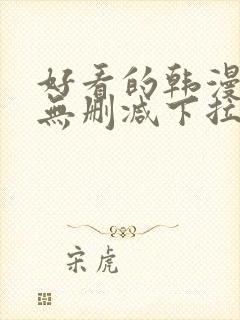 好看的韩漫
無删减下拉
宋虎